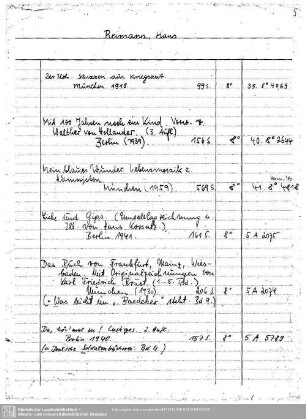 5
Reimann, Hans
München 1918. 99 S. 8° 38. 8° 4069
Mit 100 Jahren noch ein Kind. Vorw. v.
Walther von Hollander. (3. Aufl.)
Berlin (1939). 158 S. 8° 40. 8° 2644
Mein blaues Wunder. Lebensmosaik e.
Humoristen
München (1959) 569 S. 8° 41. 8° 4818
Liebe und Gips. (Umschlagzeichnung u.
Ill. von Hans Kossatz.)
Berlin 1941. 161 S. 8° 5 A 2075
Das Buch von Frankfurt, Mainz, Wies-
baden. Mit Originalzeichnungen von
Karl Friedrich Brust. (1.-5. Tsd.)
München (1930) 206 S. 8° 5 A 2074
(= Was nicht im "Baedeker" steht. Bd 9.)
Berlin 1940. 157 S. 8° 5 A 5783
Bd. 4.)
Sächsische Landesbibliothek -
Staats- und Universitätsbibliothek Dresden